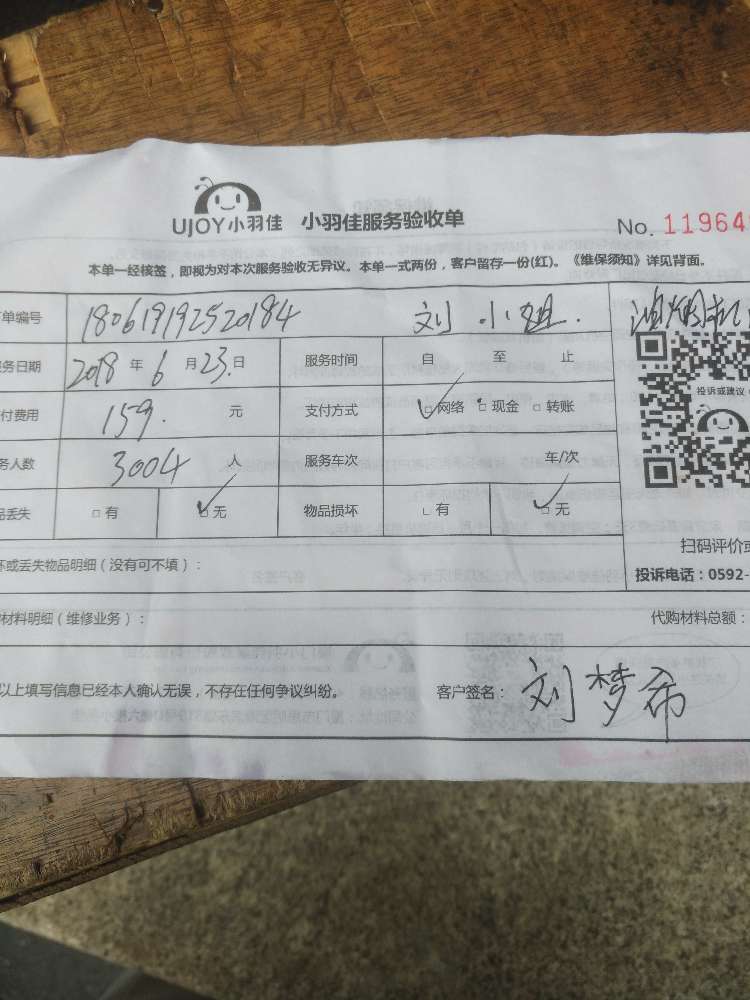 UJOY小羽佳 小羽佳服务验收单
No. 11964
本单一经核签，即视为对本次服务验收无异议。本单一式两份，客户留存一份(红)。《维保须知》详见背面。
单编号 180619192520184 刘小姐.
务日期 2018 年 6 月 23. 日 服务时间 自 至 止
付费用 159. 元 支付方式 网络 现金 转账
投诉或建议
务人数 3004 人 服务车次 车/次
品丢失 有 无 物品损坏 有 无
扫码评价或
坏或丢失物品明细（没有可不填）：
投诉电话：0592-
材料明细（维修业务）： 代购材料总额：
以上填写信息已经本人确认无误，不存在任何争议纠纷。 客户签名： 刘梦希